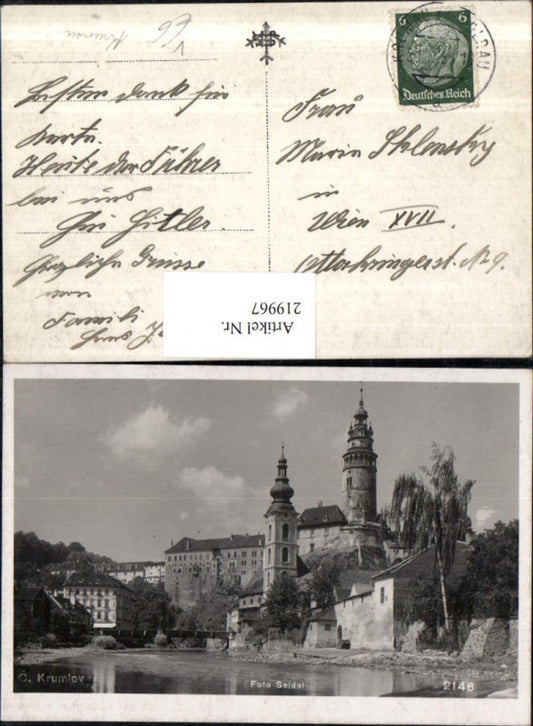 6 6
Deutsches Reich
Besten Dank für
Karte.
Heute der Führer
bei uns
Heil Hitler.
Herzliche Grüsse
von
Familie
Frau
Maria Sklensky
in
Wien XVII.
Ottakringerst. No 9.
Artikel Nr.
219967
C. Krumlov
Foto Seidel
2146